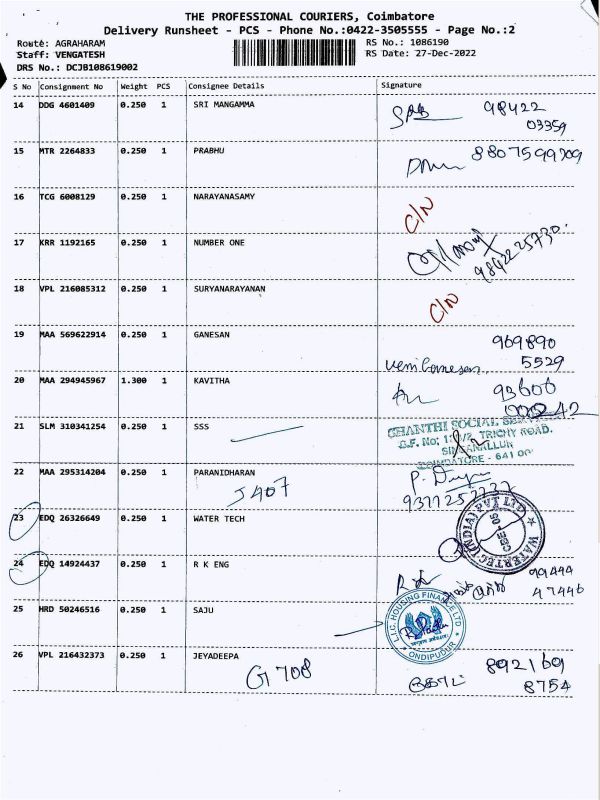 THE PROFESSIONAL COURIERS, Coimbatore
Delivery Runsheet - PCS - Phone No.:0422-3505555 - Page No.:2
Route: AGRAHARAM
RS No.: 1086190
Staff: VENGATESH
RS Date: 27-Dec-2022
DRS No.: DCJB108619002
S No Consignment No Weight PCS Consignee Details Signature
14 DDG 4601409 0.250 1 SRI MANGAMMA 98422
03359
15 MTR 2264833 0.250 1 PRABHU
16 TCG 6008129 0.250 1 NARAYANASAMY C/N
17 KRR 1192165 0.250 1 NUMBER ONE
9842225730
18 VPL 216085312 0.250 1 SURYANARAYANAN C/N
19 MAA 569622914 0.250 1 GANESAN 969890
5529
20 MAA 294945967 1.300 1 KAVITHA 93600
21 SLM 310341254 0.250 1 SSS
SHANTHI SOCIAL
TRICHY ROAD.
COIMBATORE - 641
22 MAA 295314204 0.250 1 PARANIDHARAN
J407
23 EDQ 26326649 0.250 1 WATER TECH
WATERTEC (INDIA) PVT LTD
CBE-05
24 EDQ 14924437 0.250 1 R K ENG
47446
25 HRD 50246516 0.250 1 SAJU
L.I.C. HOUSING FINANCE LTD
ONDIPUDUR
26 VPL 216432373 0.250 1 JEYADEEPA 892169
G 708 8754